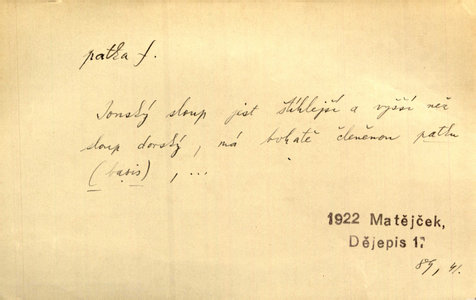 patka f.
Jonský sloup jest štíhlejší a vyšší než
sloup dorský, má bohatě členěnou patku
(basis), ...
1922 Matějček,
Dějepis 1
89, 41.